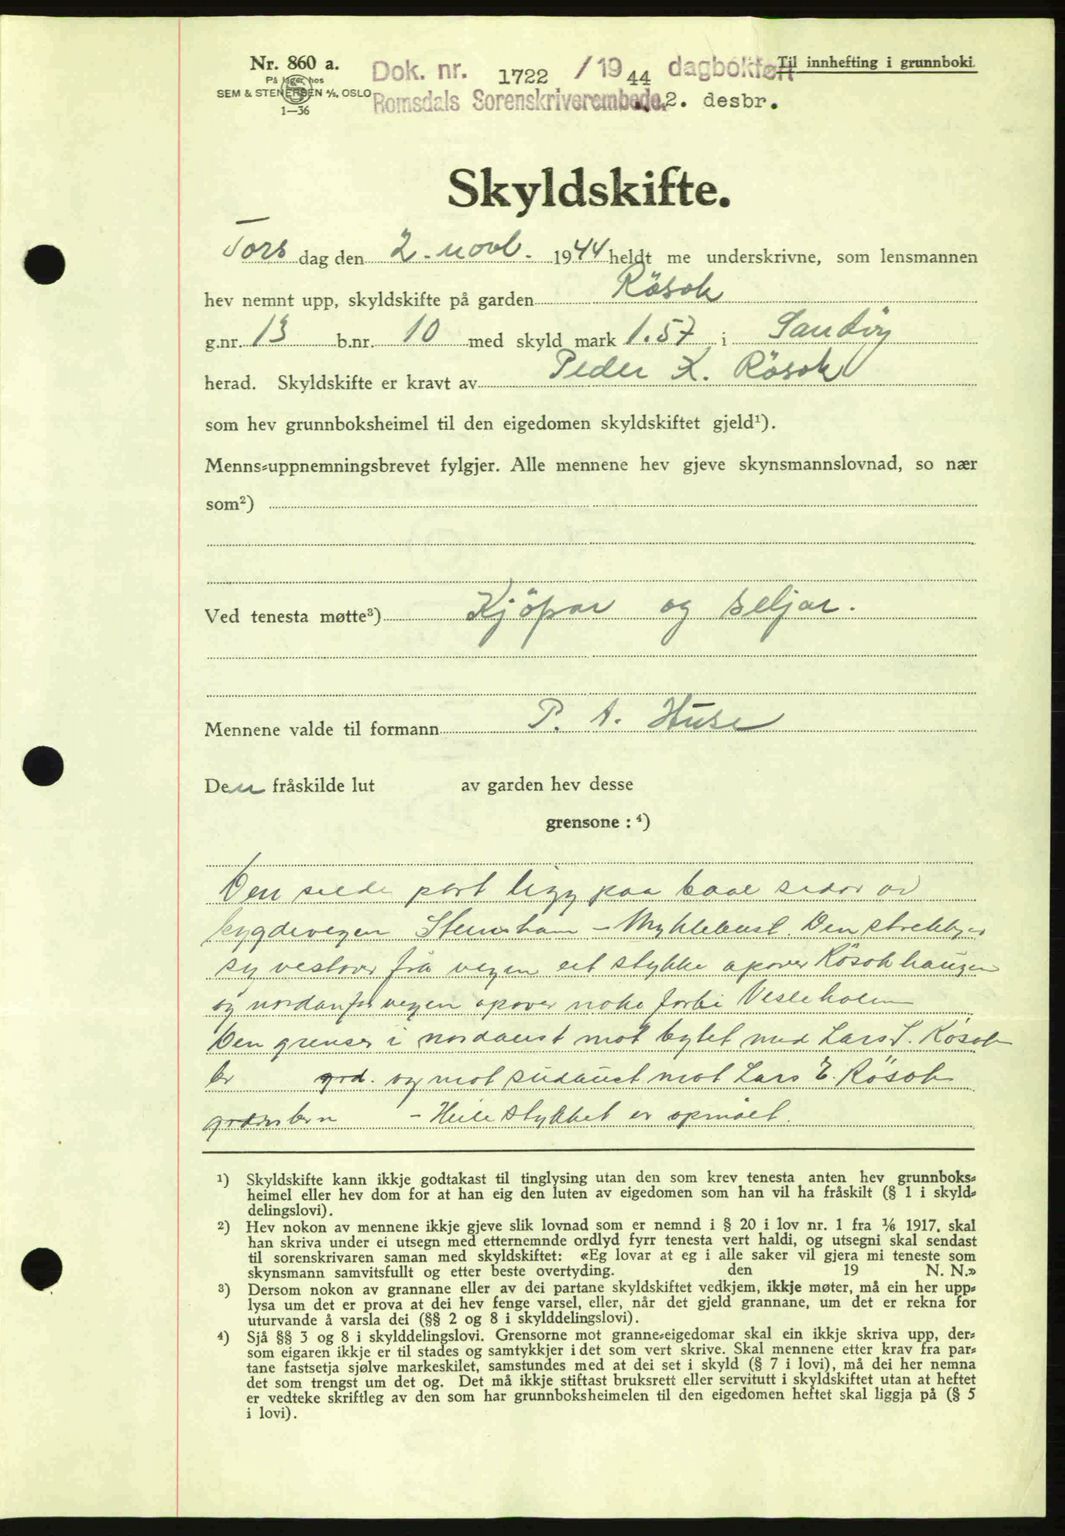 Nr. 860 a.
På lager hos
SEM & STENERSEN A/S, OSLO
1—36
Dok. nr. 1722 /19 44 dagbokført
Romsdals Sorenskriverembede. 2. desbr.
Til innhefting i grunnboki.
Skyldskifte.
Tors dag den 2. novb. 1944 heldt me underskrivne, som lensmannen
hev nemnt upp, skyldskifte på garden Rösok
g.nr. 13 b.nr. 10 med skyld mark 1.57 i Sandöy
herad. Skyldskifte er kravt av Peder K. Rösok
som hev grunnboksheimel til den eigedomen skyldskiftet gjeld¹).
Menns-uppnemningsbrevet fylgjer. Alle mennene hev gjeve skynsmannslovnad, so nær
som²)
Ved tenesta møtte³) Kjöpar og seljar.
Mennene valde til formann P. A. Huse
Den fråskilde lut av garden hev desse
grensone : ⁴)
Den selde part ligg paa baae sidor av
bygdevegen Steinshamn – Myklebust. Den strekkjer
sy vestover frå vegen eit stykke apover Rösokhaugen
og nordanfor vegen apover noke forbi Vesleholm
Den grensar i nordaust mot bytet med Lars S. Rösok
br grd. og mot sudaust mot Lars E. Rösok
– Heile stykket er opmålt.
¹) Skyldskifte kann ikkje godtakast til tinglysing utan den som krev tenesta anten hev grunnboks-
heimel eller hev dom for at han eig den luten av eigedomen som han vil ha fråskilt (§ 1 i skyld-
delingslovi).
²) Hev nokon av mennene ikkje gjeve slik lovnad som er nemnd i § 20 i lov nr. 1 fra 1/6 1917, skal
han skriva under ei utsegn med etternemnde ordlyd fyrr tenesta vert haldi, og utsegni skal sendast
til sorenskrivaren saman med skyldskiftet: «Eg lovar at eg i alle saker vil gjera mi teneste som
skynsmann samvitsfullt og etter beste overtyding. den 19 N. N.»
³) Dersom nokon av grannane eller av dei partane skyldskiftet vedkjem, ikkje møter, må ein her upp-
lysa um det er prova at dei hev fenge varsel, eller, når det gjeld grannane, um det er rekna for
uturvande å varsla dei (§§ 2 og 8 i skylddelingslovi).
⁴) Sjå §§ 3 og 8 i skylddelingslovi. Grensorne mot granne-eigedomar skal ein ikkje skriva upp, der-
som eigaren ikkje er til stades og samtykkjer i det som vert skrive. Skal mennene etter krav fra par-
tane fastsetja sjølve markeskilet, samstundes med at dei set i skyld (§ 7 i lovi), må dei her nemna
det som trengst um det og. Det må ikkje stiftast bruksrett eller servitutt i skyldskiftet utan at heftet
er vedteke skriftleg av den som har grunnboksheimelen til den eigedomen heftet skal liggja på (§ 5
i lovi).